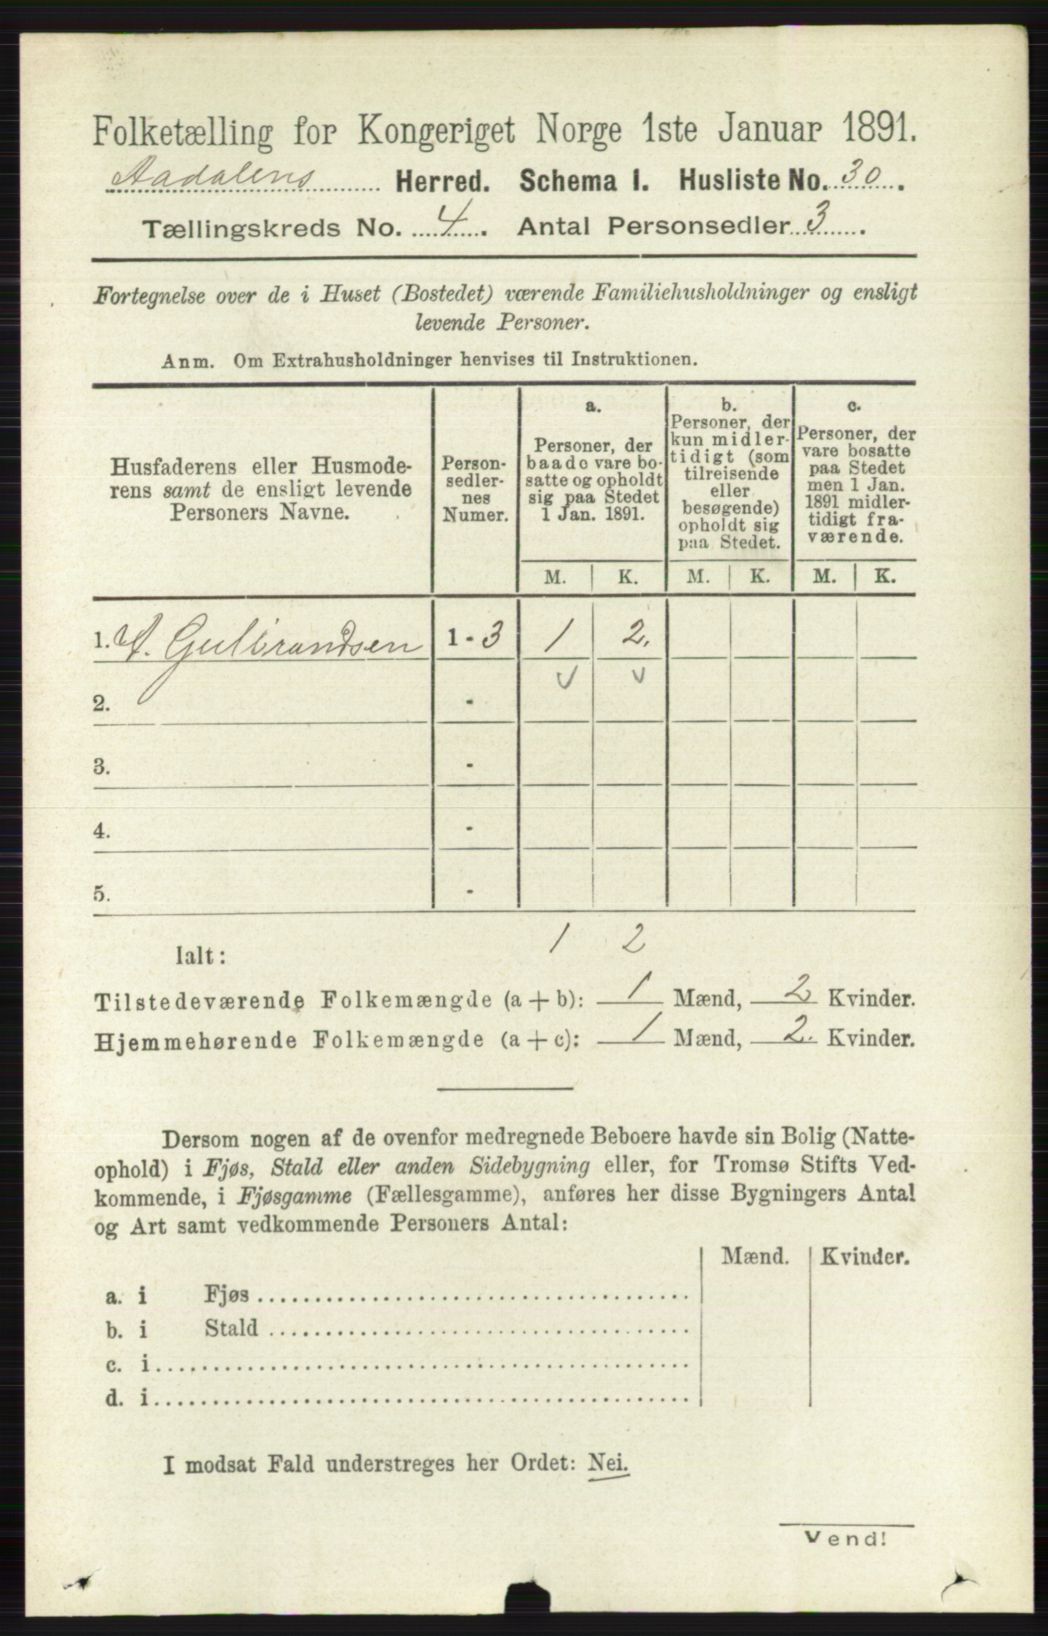 Folketælling for Kongeriget Norge 1ste Januar 1891.
Aadalens Herred. Schema I. Husliste No. 30.
Tællingskreds No. 4. Antal Personsedler 3.
Fortegnelse over de i Huset (Bostedet) værende Familiehusholdninger og ensligt
levende Personer.
Anm. Om Extrahusholdninger henvises til Instruktionen.
Husfaderens eller Husmode-
rens samt de ensligt levende
Personers Navne.
Person-
sedler-
nes
Numer.
a.
Personer, der
baade vare bo-
satte og opholdt
sig paa Stedet
1 Jan. 1891.
b.
Personer, der
kun midler-
tidigt (som
tilreisende
eller
besøgende)
opholdt sig
paa Stedet.
c.
Personer, der
vare bosatte
paa Stedet
men 1 Jan.
1891 midler-
tidigt fra-
værende.
M. K. M. K. M. K.
1. Gulbrandsen 1 - 3 1 2.
2. -
3. -
4. -
5. -
Ialt: 1 2
Tilstedeværende Folkemængde (a + b): 1 Mænd, 2 Kvinder.
Hjemmehørende Folkemængde (a + c): 1 Mænd, 2. Kvinder.
Dersom nogen af de ovenfor medregnede Beboere havde sin Bolig (Natte-
ophold) i Fjøs, Stald eller anden Sidebygning eller, for Tromsø Stifts Ved-
kommende, i Fjøsgamme (Fællesgamme), anføres her disse Bygningers Antal
og Art samt vedkommende Personers Antal:
Mænd. Kvinder.
a. i Fjøs
b. i Stald
c. i
d. i
I modsat Fald understreges her Ordet: Nei.
Vend!